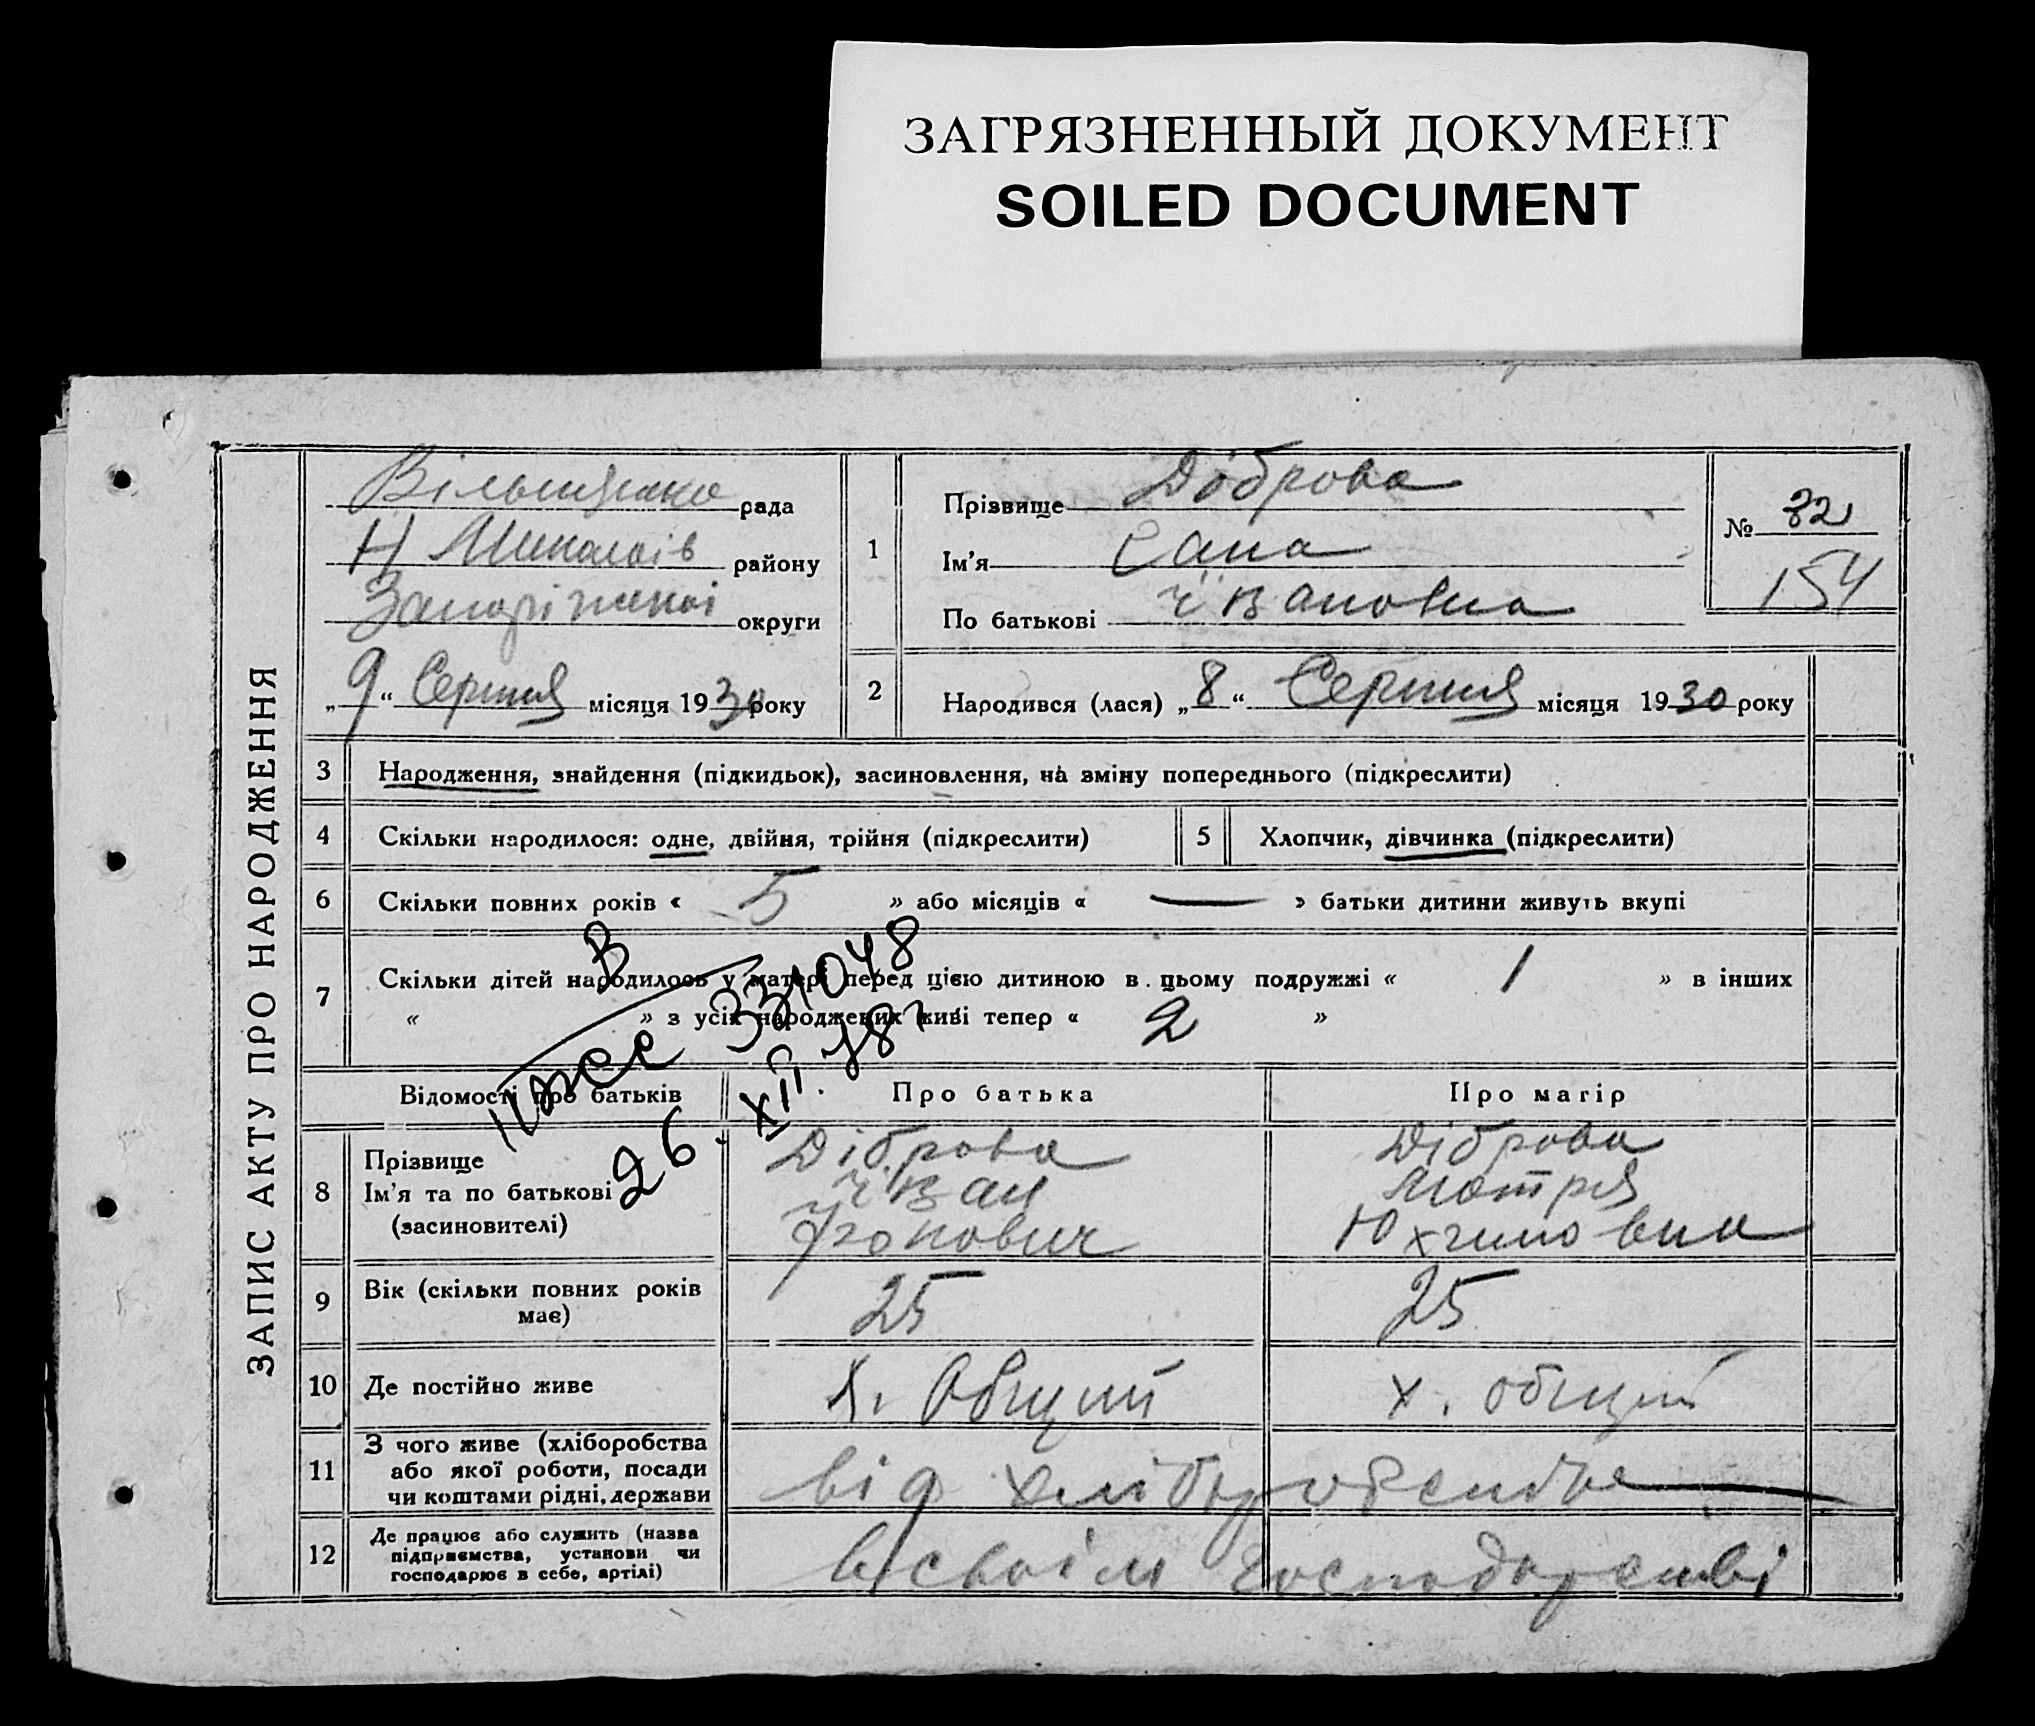 ЗАГРЯЗНЕННЫЙ ДОКУМЕНТ
SOILED DOCUMENT
ЗАПИС АКТУ ПРО НАРОДЖЕННЯ
рада
Н Миколаїв району
Запоріжжої округи
„9“ Серпня місяця 1930 року
1
Прізвище Діброва
Ім'я
По батькові Йвановна
№ 32
154
2 Народився (лася) „8“ Серпня місяця 1930 року
3 Народження, знайдення (підкидьок), засиновлення, на зміну попереднього (підкреслити)
4 Скільки народилося: одне, двійня, трійня (підкреслити)
5 Хлопчик, дівчинка (підкреслити)
6 Скільки повних років « 5 » або місяців « — » батьки дитини живуть вкупі
7 Скільки дітей народилось у матері перед цією дитиною в цьому подружжі « 1 » в інших
« » з усіх народжених живі тепер « 2 »
331048
26.XII.78г
Відомості про батьків
Про батька
Про матір
8 Прізвище
Ім'я та по батькові
(засиновителі)
Діброва
Йван
Діброва
Мотря
Юхимовна
9 Вік (скільки повних років
має)
25
25
10 Де постійно живе
х. Общий
х. общий
11 З чого живе (хліборобства
або якої роботи, посади
чи коштами рідні, держави
від хліборобства
12 Де працює або служить (назва
підприємства, установи чи
господарює в себе, артілі)
в своїм господарстві